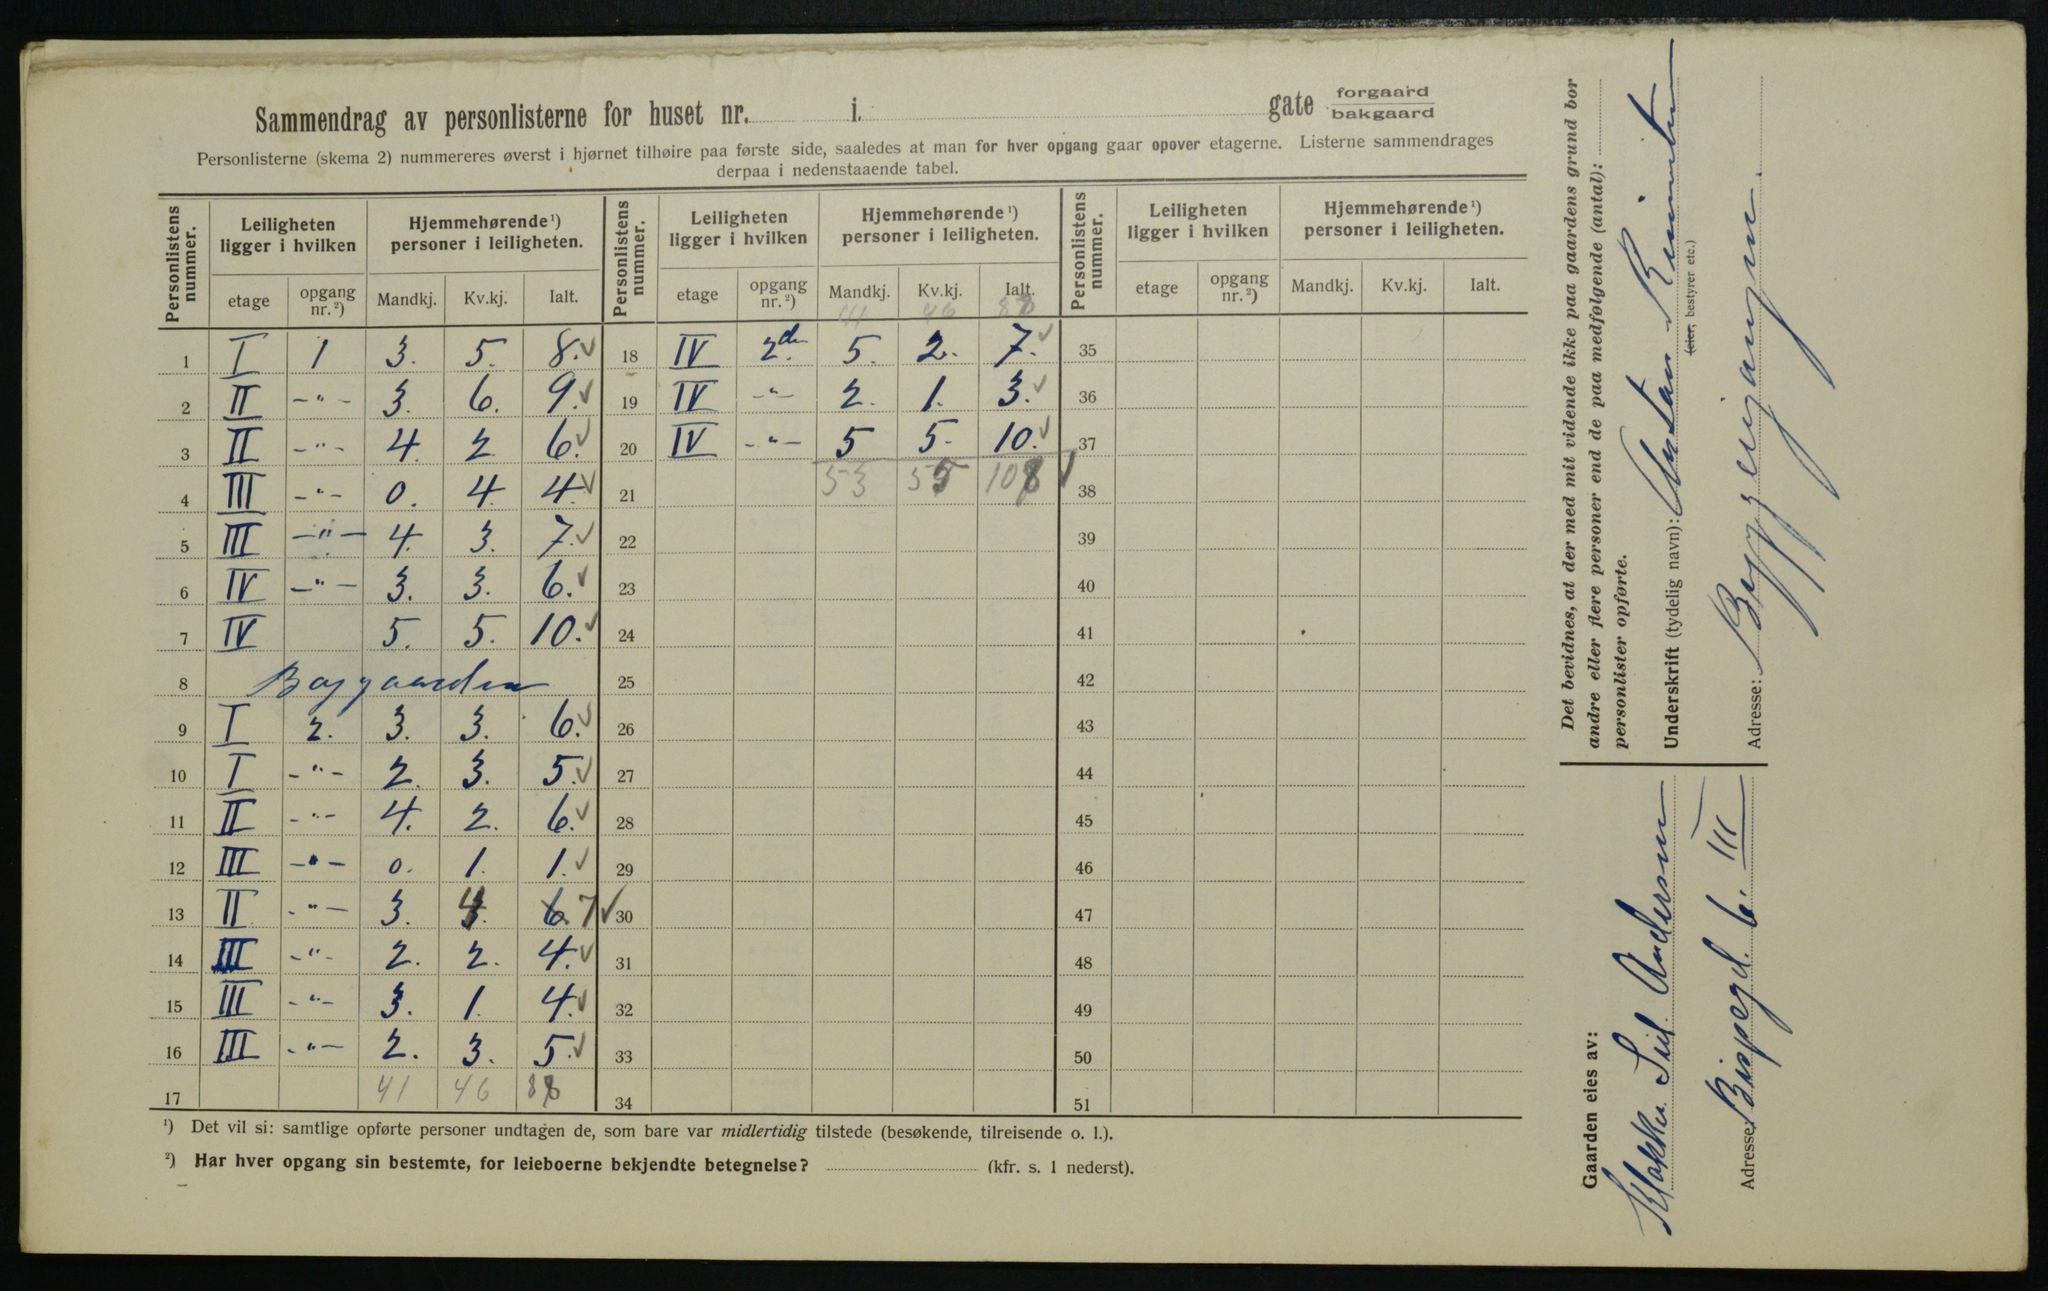 Sammendrag av personlisterne for huset nr. i. gate forgaard
bakgaard
Personlisterne (skema 2) nummereres øverst i hjørnet tilhøire paa første side, saaledes at man for hver opgang gaar opover etagerne. Listerne sammendrages
derpaa i nedenstaaende tabel.
Personlistens nummer. Leiligheten ligger i hvilken Hjemmehørende¹) personer i leiligheten. Personlistens nummer. Leiligheten ligger i hvilken Hjemmehørende¹) personer i leiligheten. Personlistens nummer. Leiligheten ligger i hvilken Hjemmehørende¹) personer i leiligheten.
etage opgang nr.²) Mandkj. Kv.kj. Ialt. etage opgang nr.²) Mandkj. Kv.kj. Ialt. etage opgang nr.²) Mandkj. Kv.kj. Ialt.
41 46 88
1 I 1 3. 5. 8. ✓ 18 IV 2den 5. 2. 7. ✓ 35
2 II -"- 3. 6. 9. ✓ 19 IV -"- 2. 1. 3. ✓ 36
3 II -"- 4. 2. 6. ✓ 20 IV -"- 5 5. 10. ✓ 37
4 III -"- 0. 4 4. ✓ 21 53 55 108 ✓ 38
5 III -"- 4. 3. 7. ✓ 22 39
6 IV -"- 3. 3. 6. ✓ 23 40
7 IV 5. 5. 10. ✓ 24 41
8 Baggaarden 25 42
9 I 2. 3. 3. 6. ✓ 26 43
10 I -"- 2. 3. 5. ✓ 27 44
11 II -"- 4. 2. 6. ✓ 28 45
12 III -"- 0. 1. 1. ✓ 29 46
13 II -"- 3. 4 6. 7 ✓ 30 47
14 III -"- 2. 2. 4. ✓ 31 48
15 III -"- 3. 1. 4. ✓ 32 49
16 III -"- 2. 3. 5. ✓ 33 50
17 41 46 88 34 51
¹) Det vil si: samtlige opførte personer undtagen de, som bare var midlertidig tilstede (besøkende, tilreisende o. l.).
²) Har hver opgang sin bestemte, for leieboerne bekjendte betegnelse? (kfr. s. 1 nederst).
Det bevidnes, at der med mit vidende ikke paa gaardens grund bor
andre eller flere personer end de paa medfølgende (antal):
personlister opførte.
Underskrift (tydelig navn):
(eier, bestyrer etc.)
Adresse:
Gaarden eies av:
Andersen
Adresse: Bispegd. 6. III